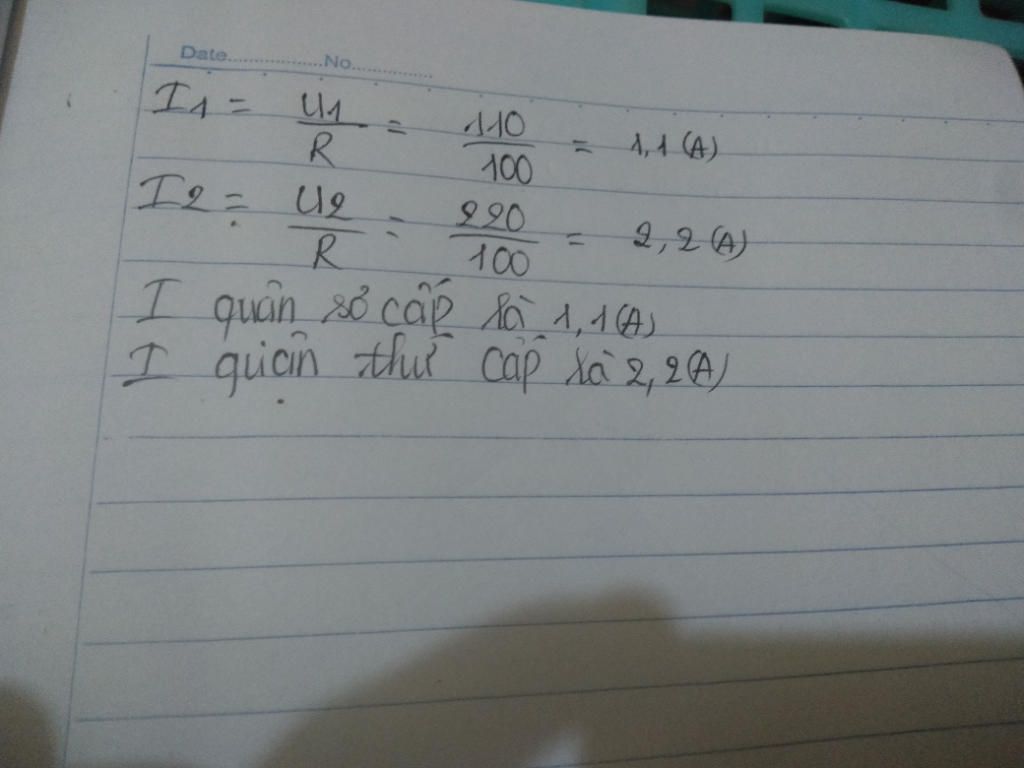 Date..................No................
I1 = U1/R = 110/100 = 1,1 (A)
I2 = U2/R = 220/100 = 2,2 (A)
I quấn sơ cấp là 1,1 (A)
I quấn thứ cấp là 2,2 (A)